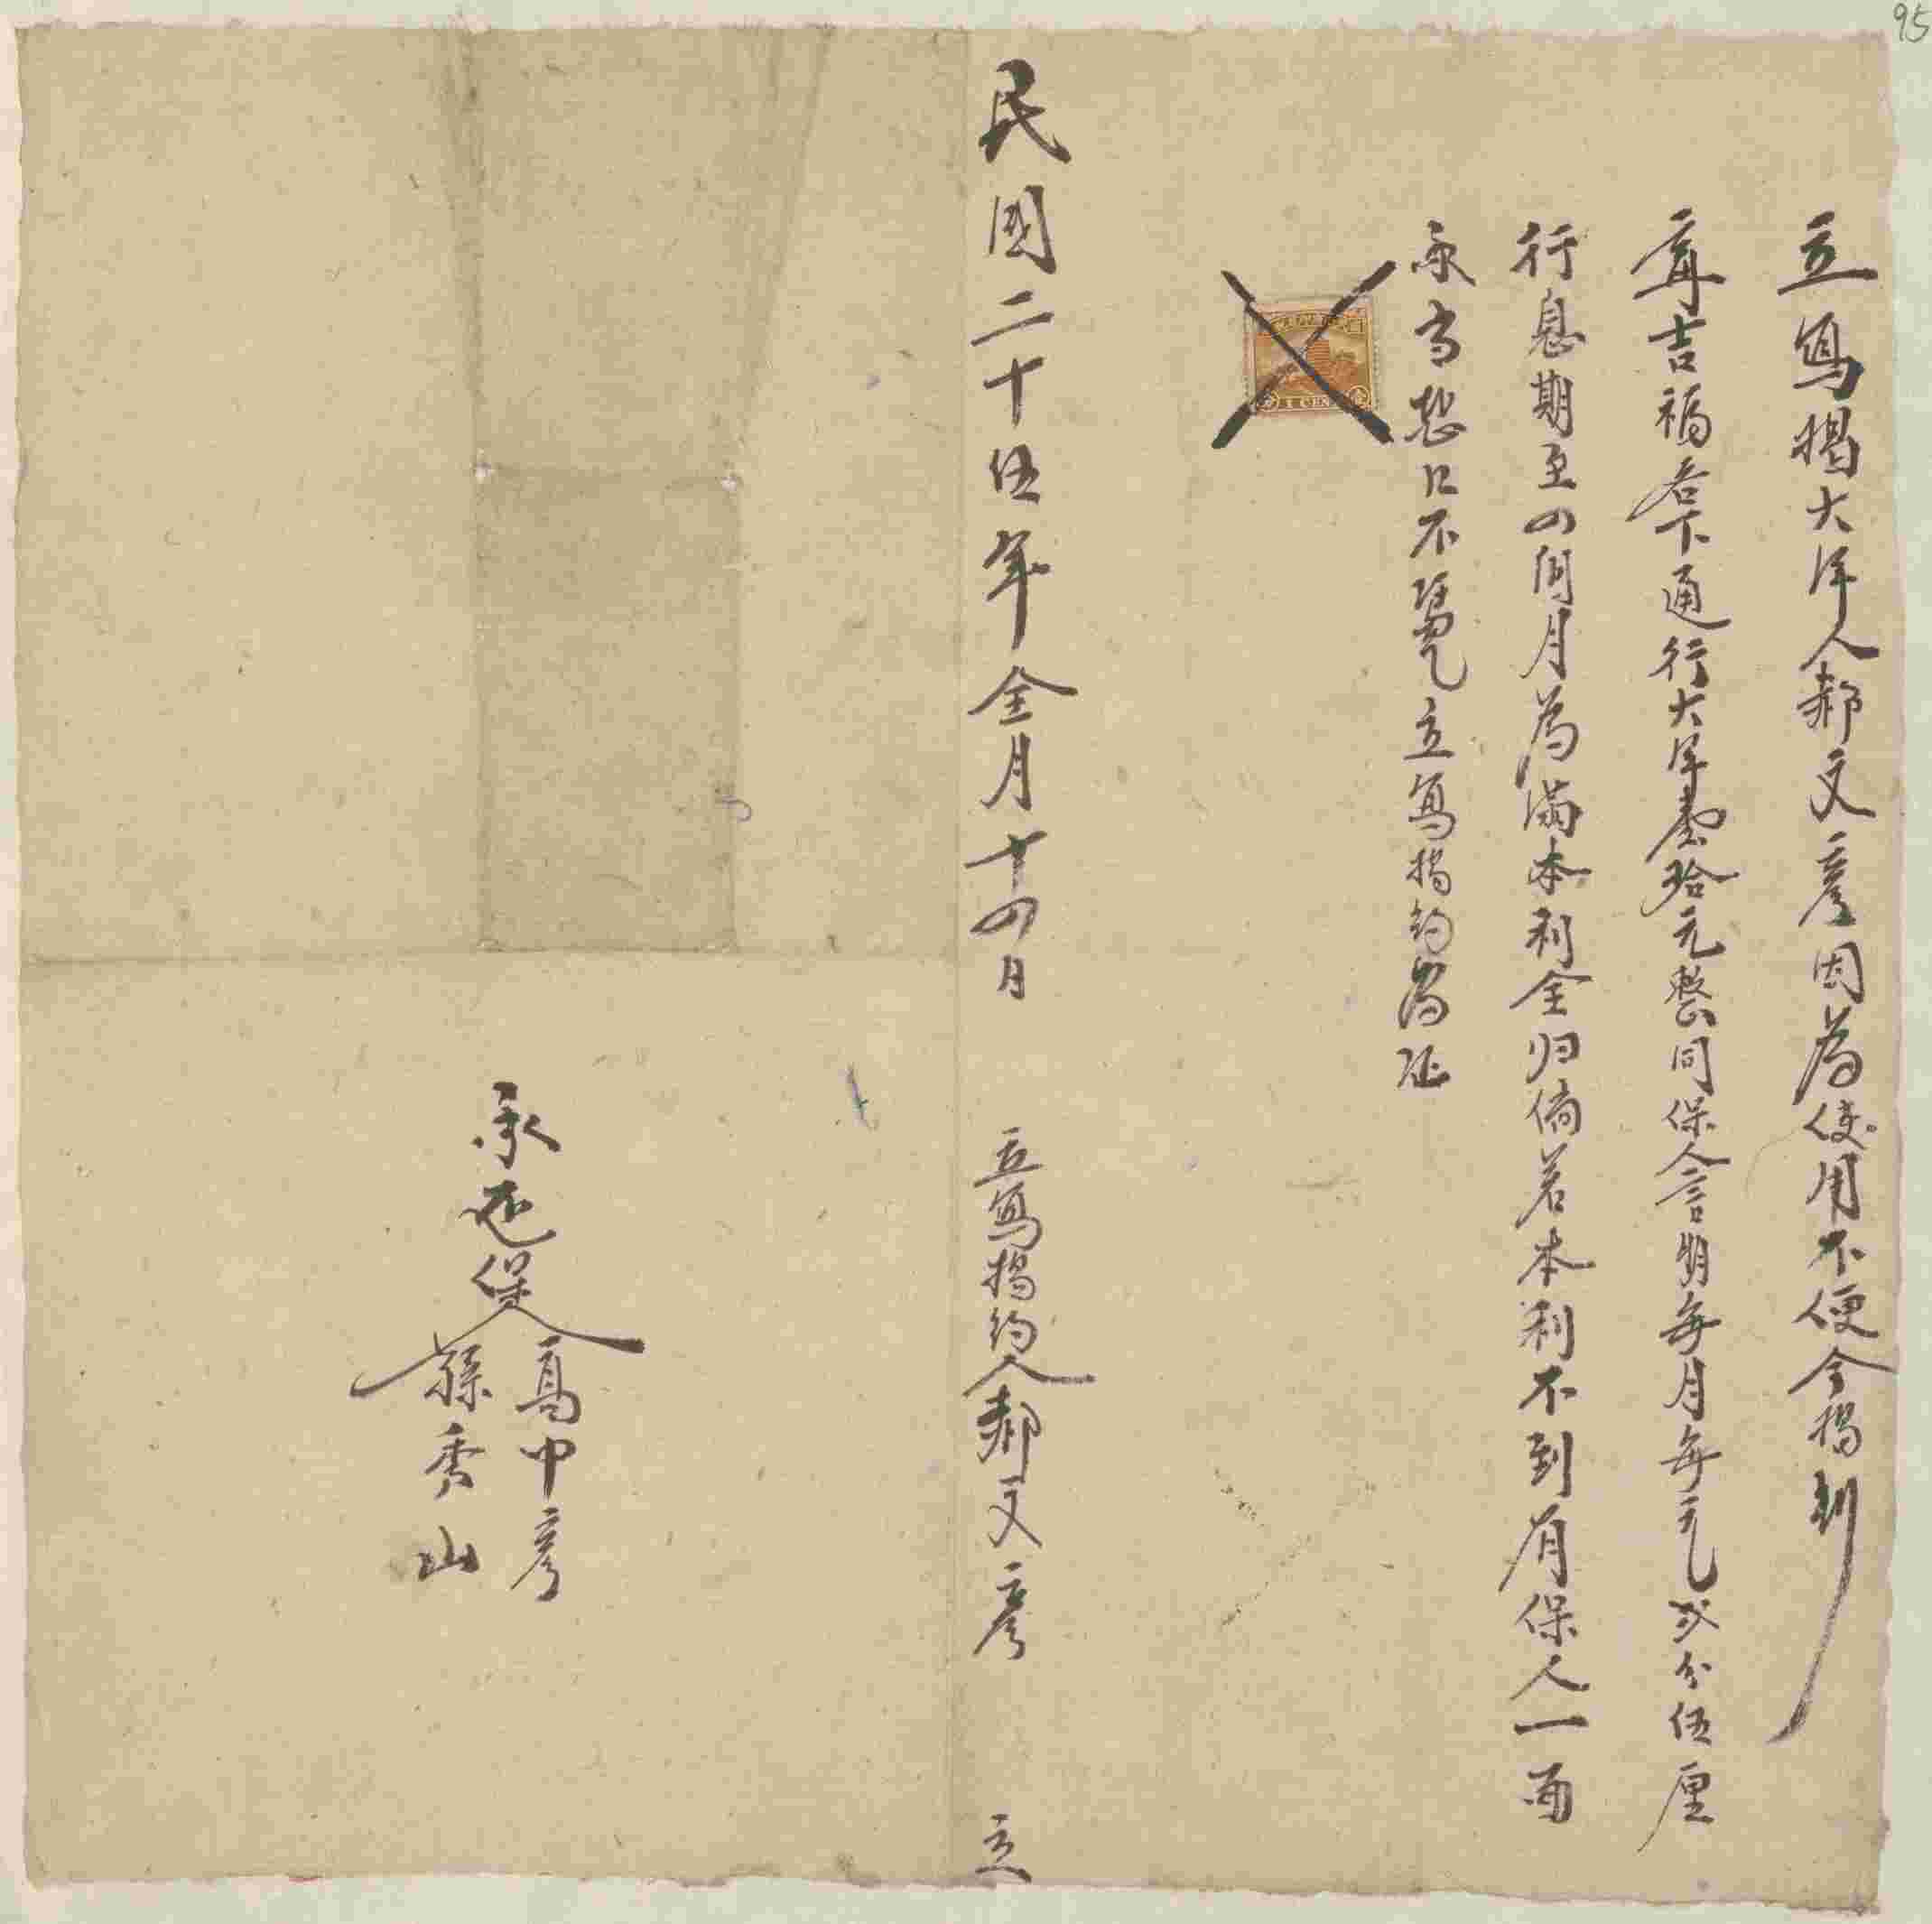 95
立寫揭大洋人郝文彥因為使用不便今揭到
吉福名下通行大洋壹拾元整同保人言明每月每元弍分伍厘
行息期至四個月為滿本利全归倘若本利不到有保人一面
承当恐口不憑立寫揭約為证
1 CENT
民國二十伍年全月十四日 立寫揭約人郝文彥 立
承还保人高中彥
孫秀山